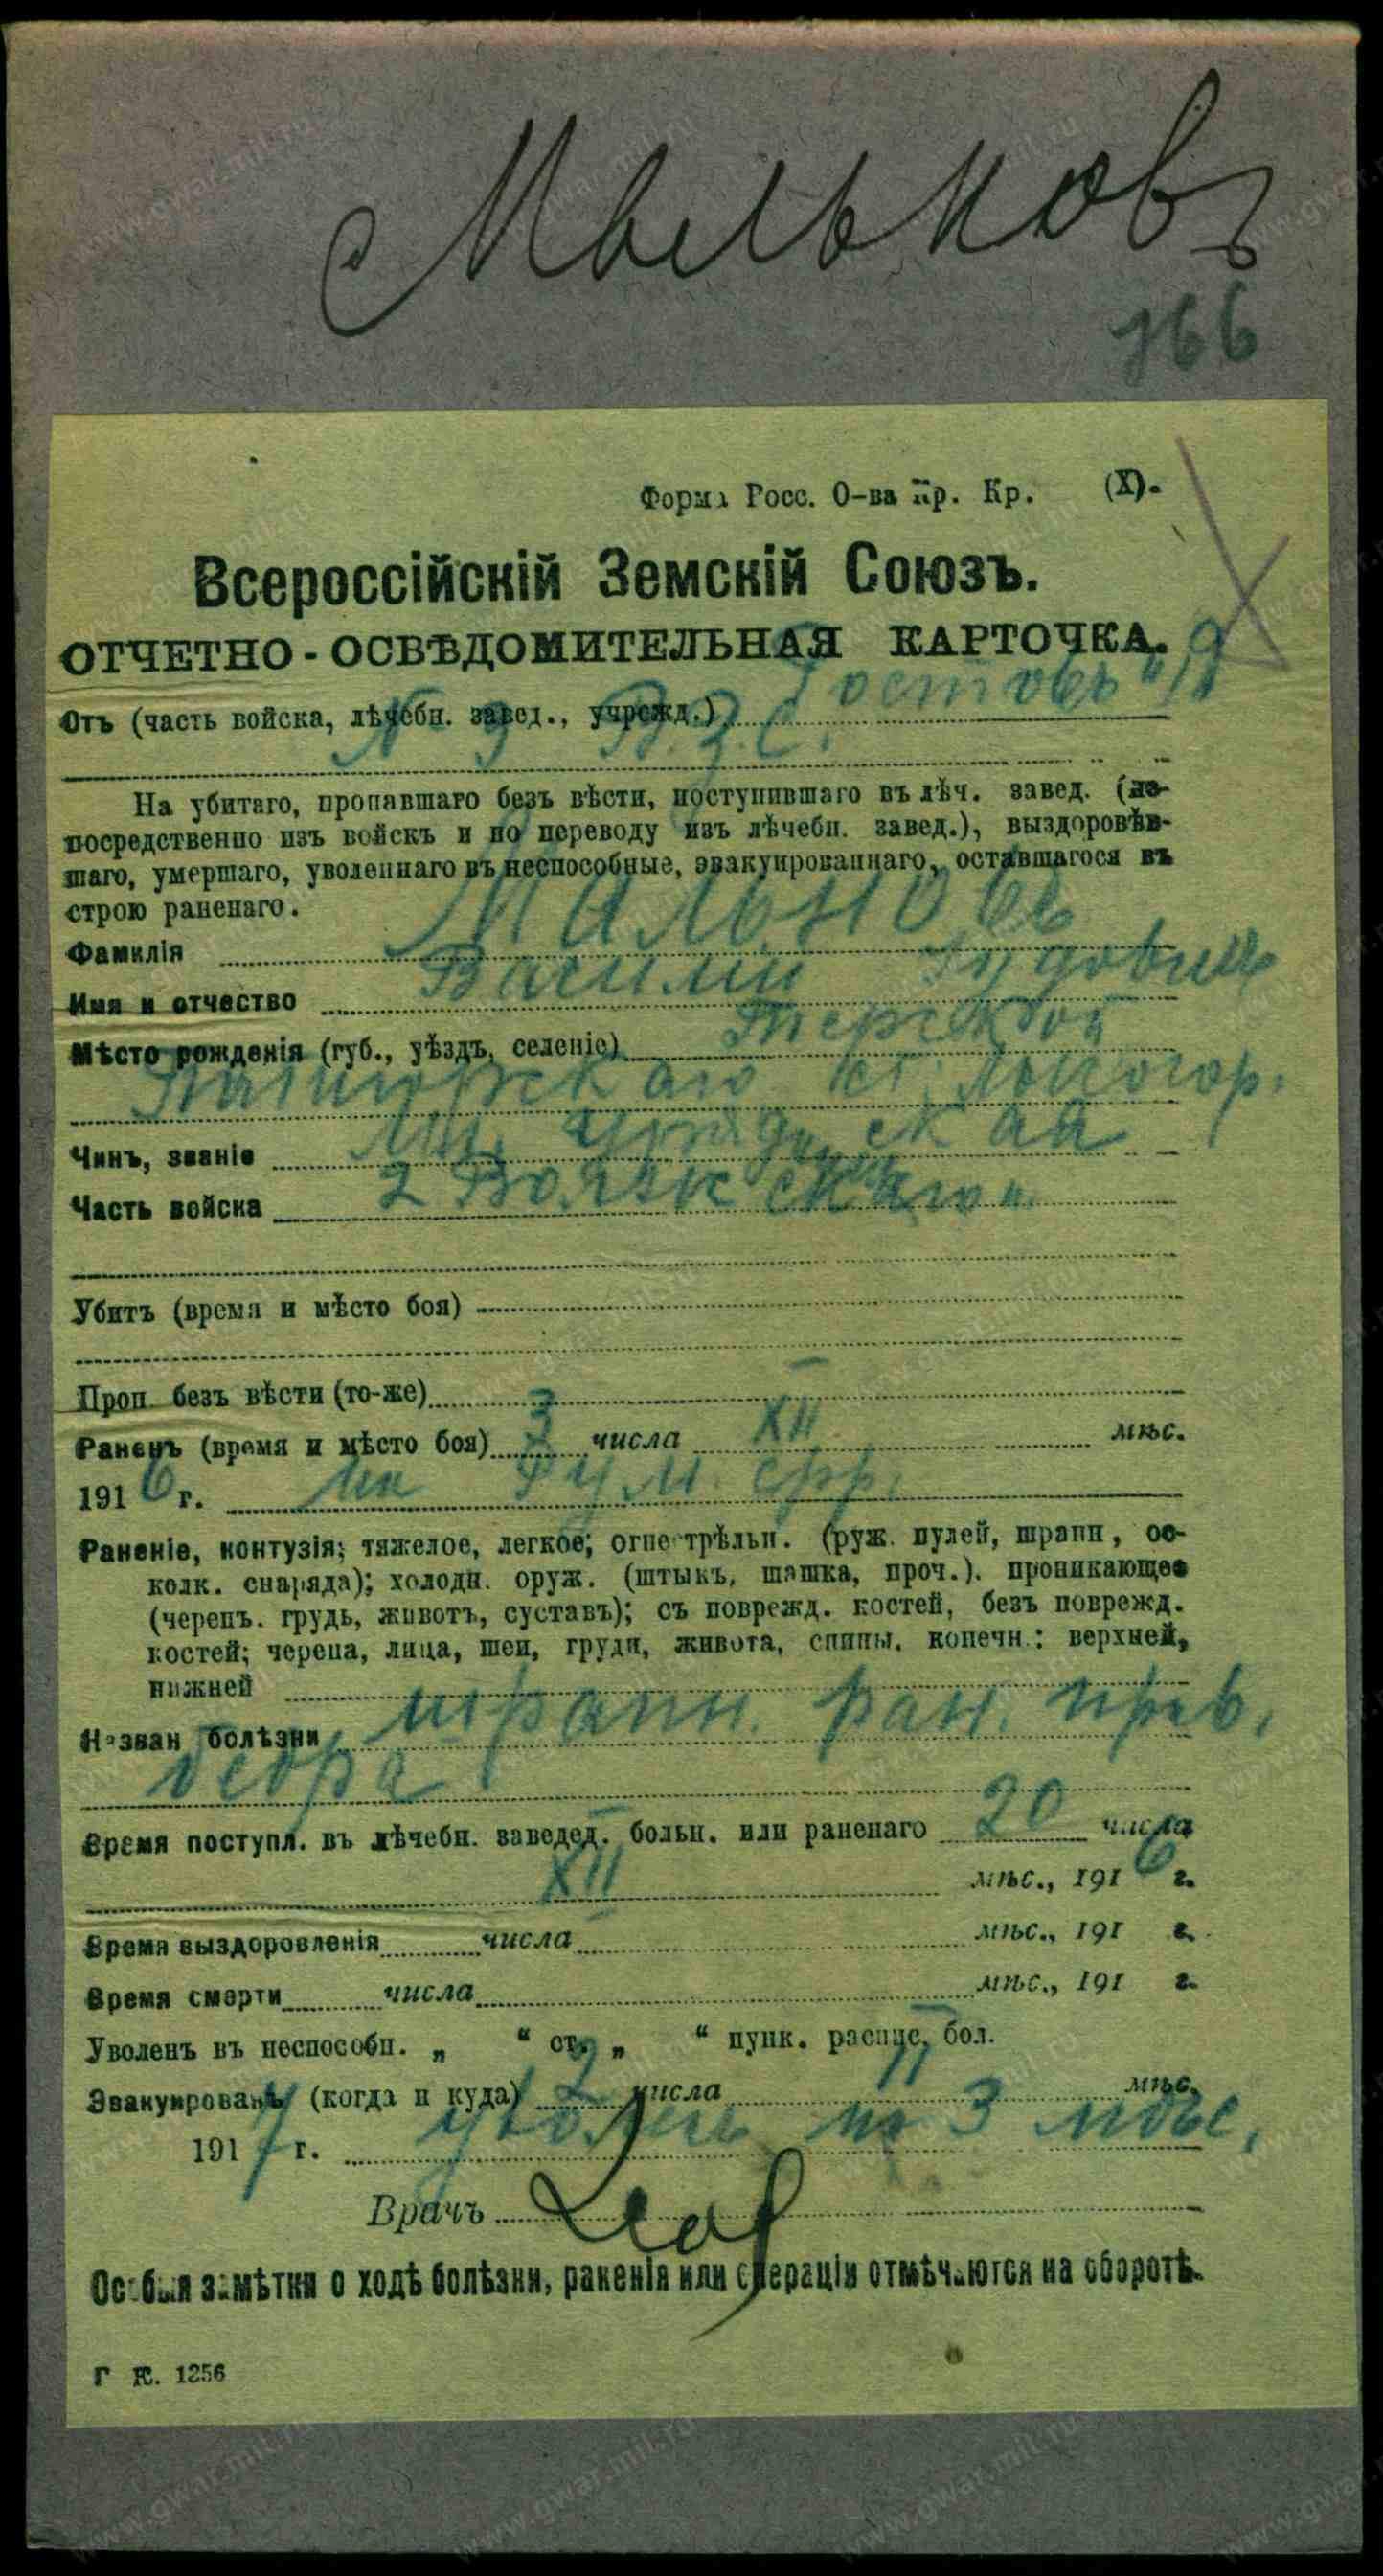 Мыльковъ
166
Форма Росс. О-ва Кр. Кр. (X).
Всероссійскій Земскій Союзъ.
ОТЧЕТНО-ОСВѢДОМИТЕЛЬНАЯ КАРТОЧКА.
Отъ (часть войска, лѣчебн. завед., учрежд.) Ростовъ н/Д
№ 9 В.З.С.
На убитаго, пропавшаго безъ вѣсти, поступившаго въ лѣч. завед. (не-
посредственно изъ войскъ и по переводу изъ лѣчебн. завед.), выздоровѣв-
шаго, умершаго, уволеннаго въ неспособные, эвакуированнаго, оставшагося въ
строю раненаго.
Фамилія
Имя и отчество Василій
Мѣсто рожденія (губ., уѣздъ, селеніе) Терской
Чинъ, званіе
Часть войска 2
Убитъ (время и мѣсто боя)
Проп. безъ вѣсти (то-же)
Раненъ (время и мѣсто боя) 3 числа XII мѣс.
1916 г. на Рум. фр.
Раненіе, контузія; тяжелое, легкое; огнестрѣльн. (руж. пулей, шрапн, ос-
колк. снаряда); холодн. оруж. (штыкъ, шашка, проч.). проникающее
(черепъ. грудь, животъ, суставъ); съ поврежд. костей, безъ поврежд.
костей; черепа, лица, шеи, груди, живота, спины. конечн.: верхней,
нижней
Назван болѣзни шрапн. ран. прав.
бедра
Время поступл. въ лѣчебн. заведед. больн. или раненаго 20 числа
XII мѣс., 1916 г.
Время выздоровленія числа мѣс., 191 г.
Время смерти числа мѣс., 191 г.
Уволенъ въ неспособн. „ “ ст. „ “ пунк. распис. бол.
Эвакуированъ (когда и куда) 2 числа II мѣс.
1917 г. уволенъ на 3 мѣс.
Врачъ
Особыя замѣтки о ходѣ болѣзни, раненія или операціи отмѣчаются на оборотѣ.
Г К. 1256